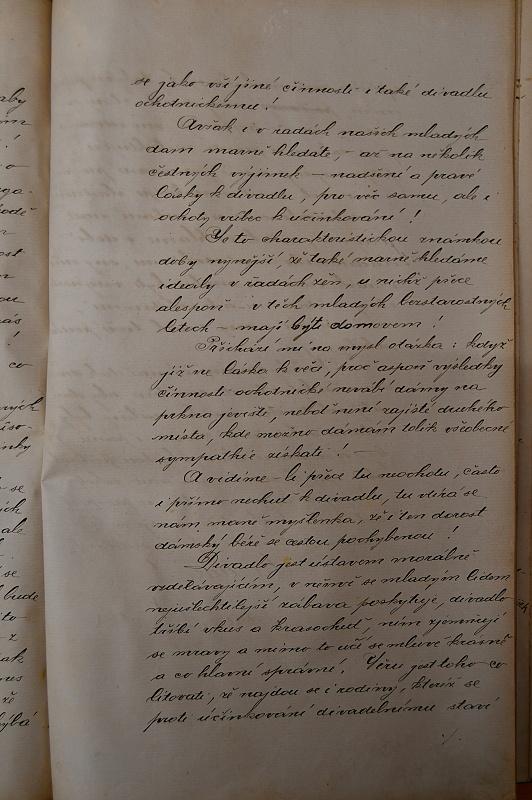 se jako vší jiné činnosti i také divadlu
ochotnickému!
Avšak i v řadách našich mladých
dam marně hledáte, – až na několik
čestných vyjímek – nadšení a pravé
lásky k divadlu, pro věc samu, ale i
ochoty vůbec k účinkování!
Jeto charakteristickou známkou
doby nynější, že také marně hledáme
ideály v řadách žen, u nichž přece
alespoň – v těch mladých bezstarostných
letech – mají býti domovem!
Přichází mi na mysl otázka: když
již ne láska k věci, proč aspoň výsledky
činnosti ochotnické nevábí dámy na
prkna jeviště, neboť není zajisté druhého
místa, kde možno dámám tolik všeobecné
sympathie získati! –
A vidíme-li přece tu neochotu, často
i přímo nechuť k divadlu, tu vtírá se
nám maně myšlenka, že i ten dorost
dámský béře se cestou pochybenou!
Divadlo jest ústavem morálně
vzdělávajícím, v němž se mladým lidem
nejušlechtilejší zábava poskytuje, divadlo
tříbí vkus a krasochuť, ním zjemnují
se mravy a mimo to učí se mluvě krásné
a co hlavní správné. Věru jest toho co
litovati, že najdou se i rodiny, kteréž se
proti účinkování divadelnímu staví
./.
aby
!
o
ost
!
co
ných
se
ale
se
bude
to
z
ak
nes
že